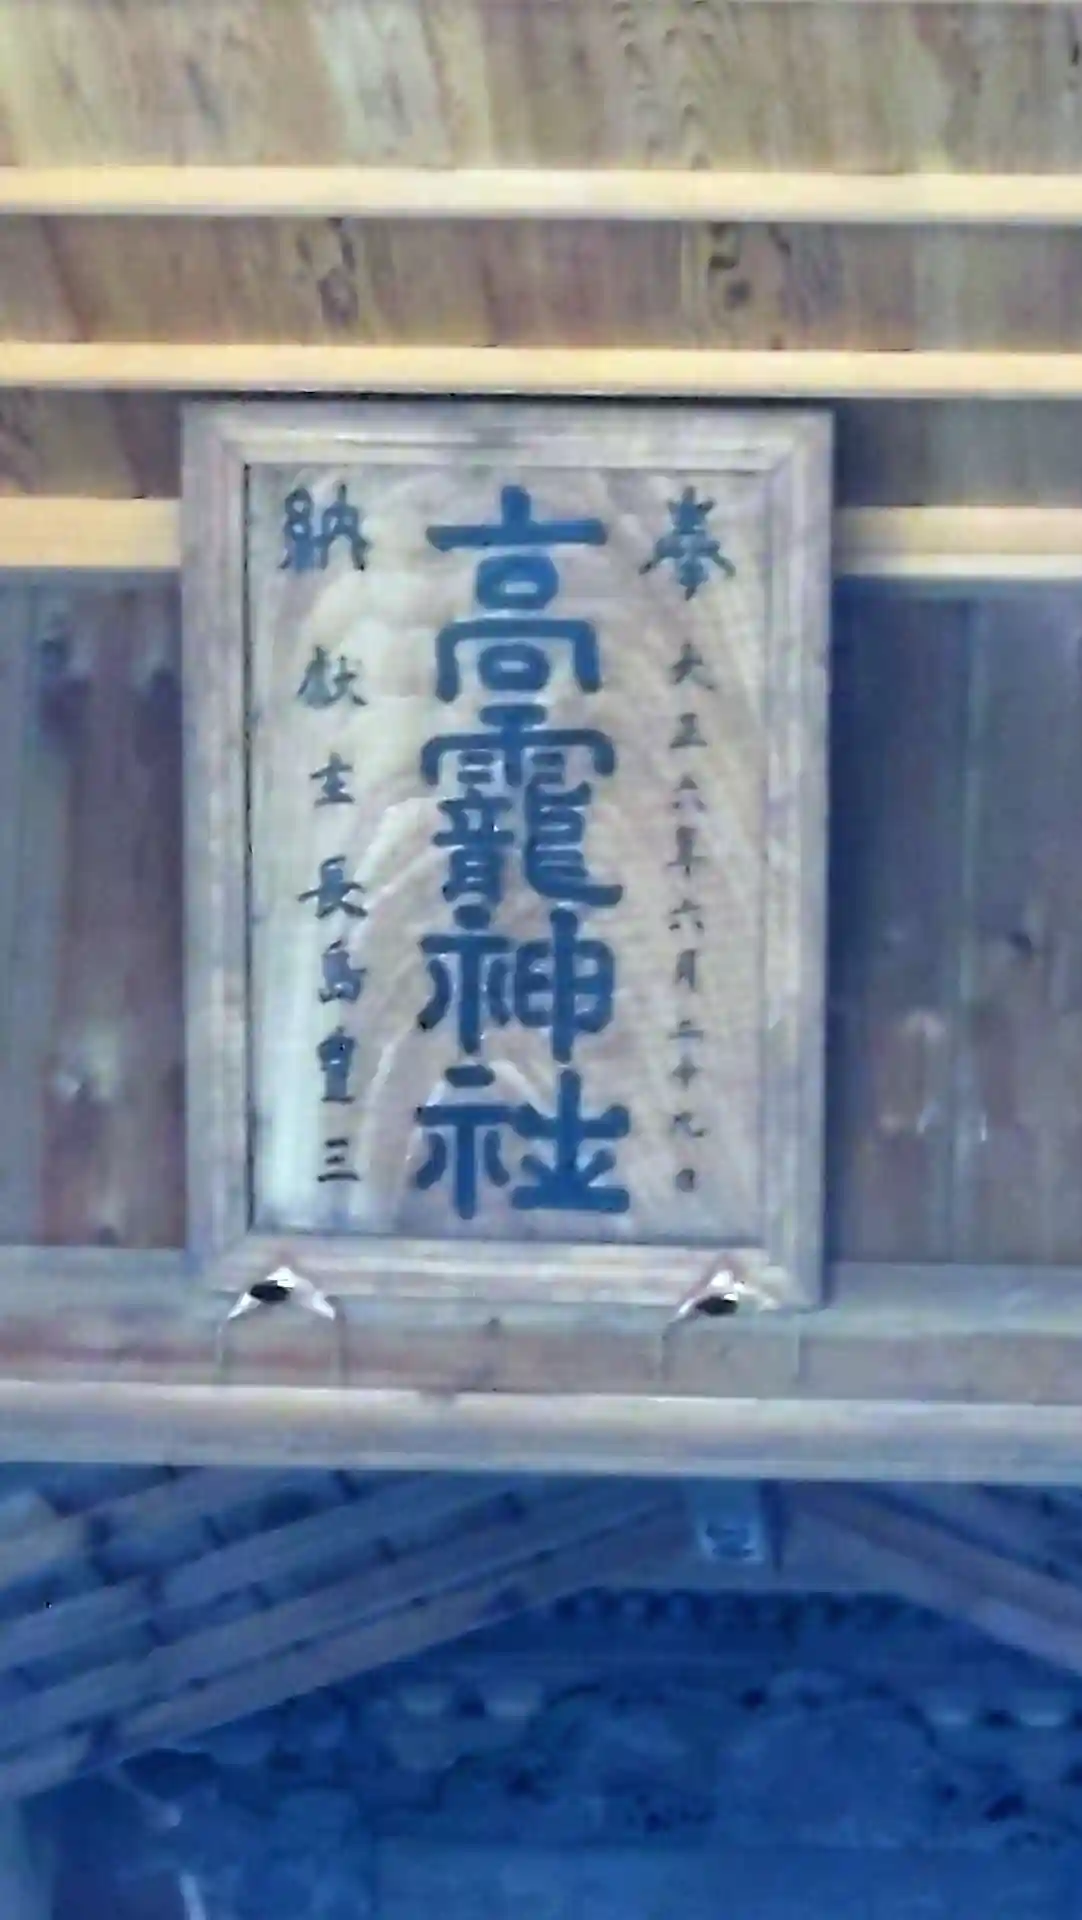 奉 大正六年六月二十九日
高龗神社
納 献主 長島重三